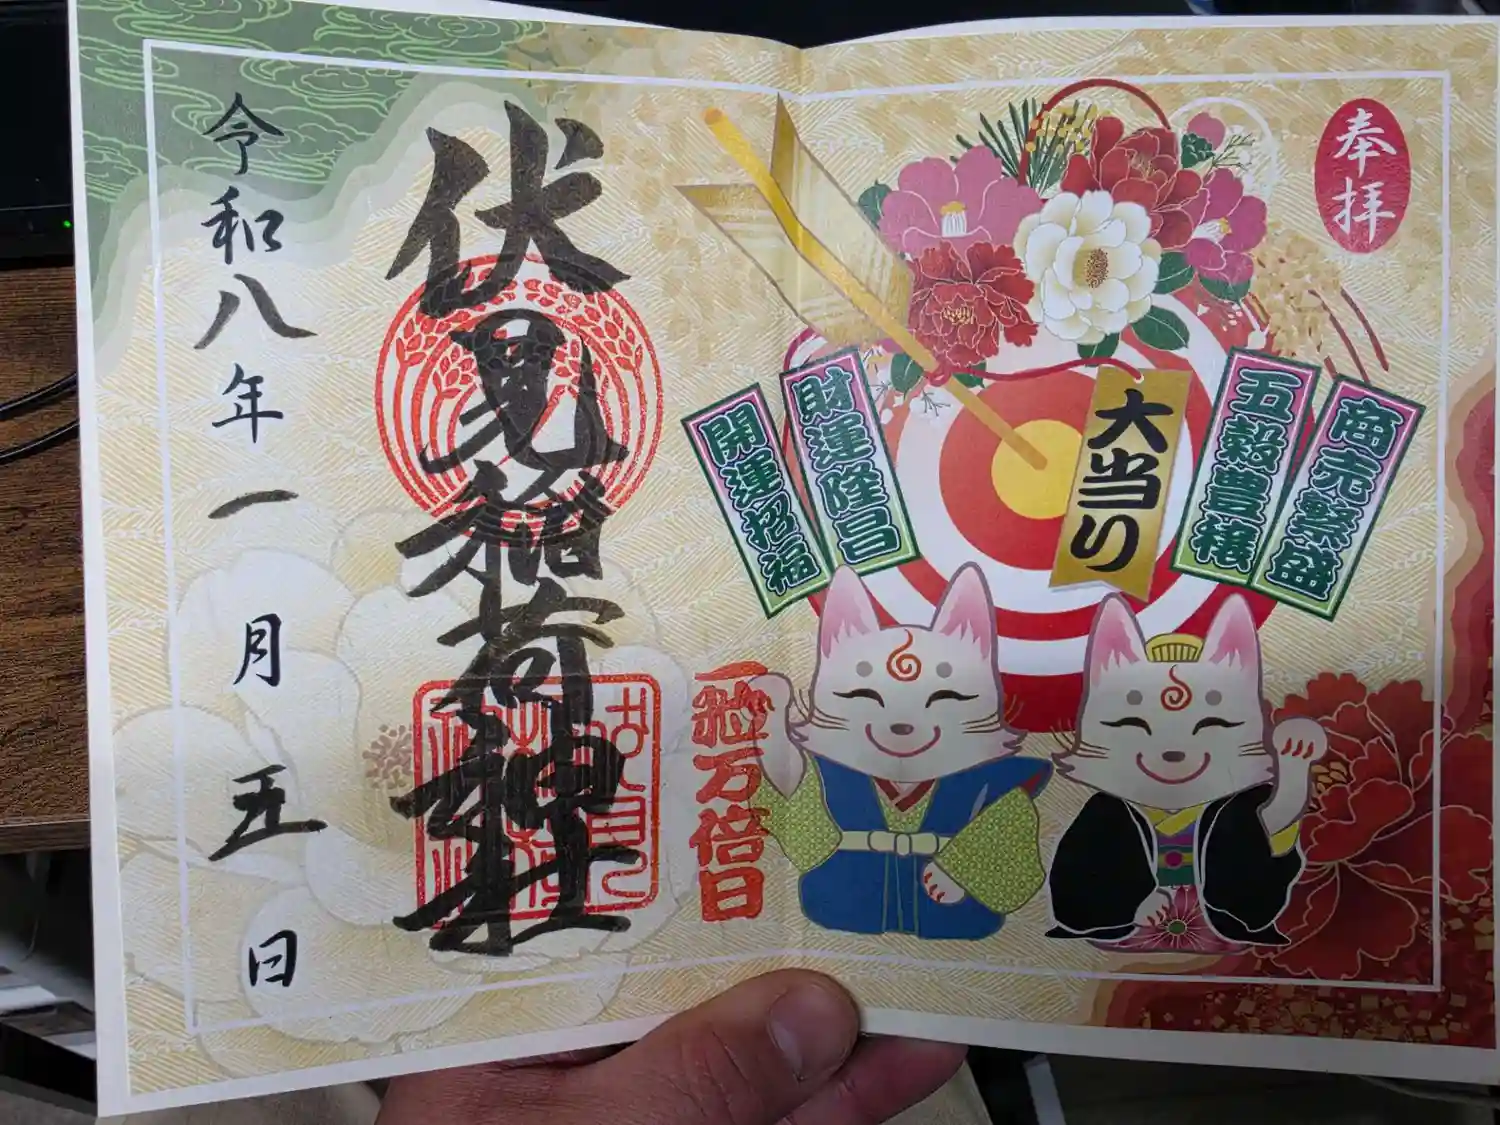 奉拝
商売繁盛
五穀豊穣
大当り
財運隆昌
開運招福
一粒万倍日
伏見稲荷神社
令和八年一月五日